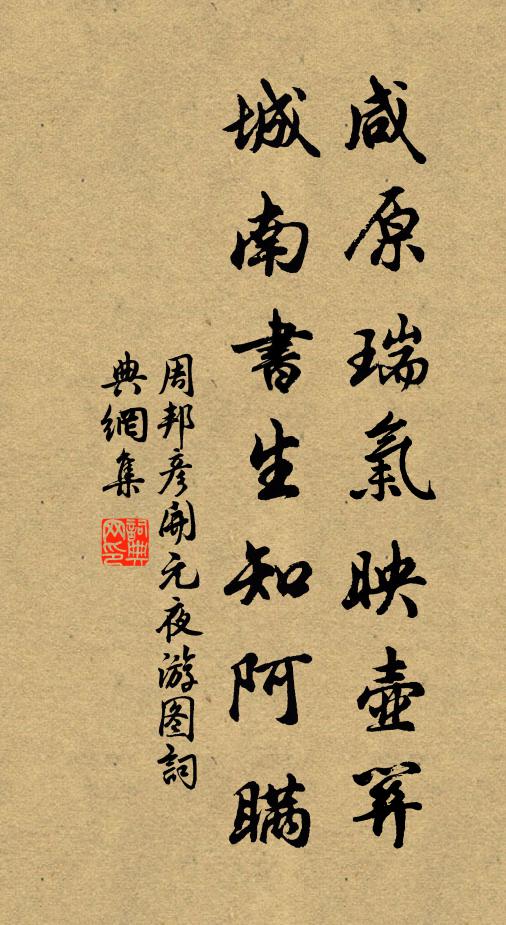 咸原瑞氣映壺關
城南書生知阿瞞
周邦彥開元夜游图詞
典網集
詞典
网印